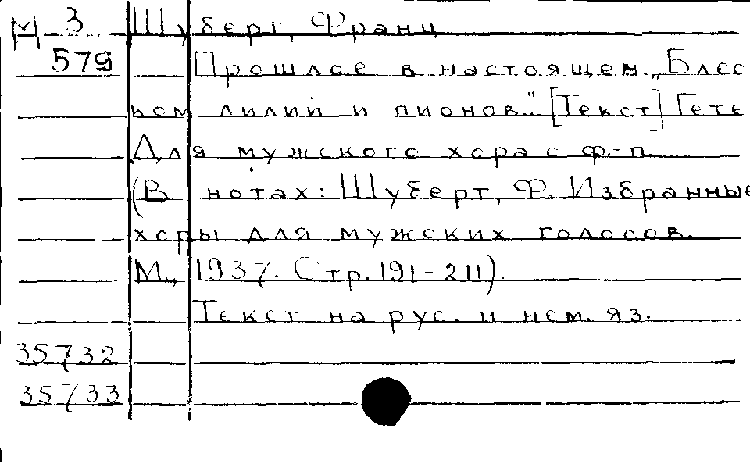 М 3 Шуберт, Франц
579 Прошлое в настоящем. „Блес
ком лилий и пионов." [Текст] Гете
Для мужского хора с ф-п.
(В нотах: Шуберт, Ф. Избранные
хоры для мужских голосов.
М., 1937. Стр. 191-211).
Текст на рус. и нем. яз.
35732
35733